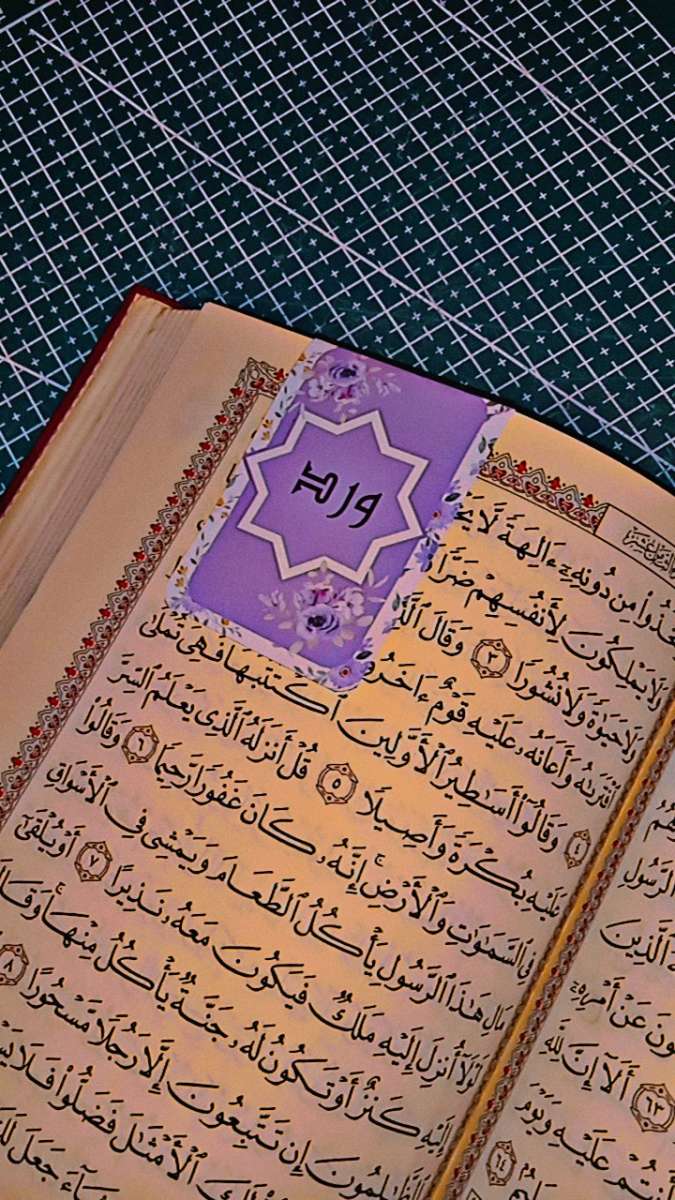 ورد
مِن دُونِهِۦٓ ءَالِهَةً لَّا
وَلَا يَمْلِكُونَ لِأَنفُسِهِمْ ضَرًّا
وَلَا حَيَوٰةً وَلَا نُشُورًا ٣ وَقَالَ
ٱفْتَرَىٰهُ وَأَعَانَهُۥ عَلَيْهِ قَوْمٌ
٤ وَقَالُوٓا۟ أَسَٰطِيرُ ٱلْأَوَّلِينَ ٱكْتَتَبَهَا فَهِىَ تُمْلَىٰ
عَلَيْهِ بُكْرَةً وَأَصِيلًا ٥ قُلْ أَنزَلَهُ ٱلَّذِى يَعْلَمُ ٱلسِّرَّ
فِى ٱلسَّمَٰوَٰتِ وَٱلْأَرْضِ إِنَّهُۥ كَانَ غَفُورًا رَّحِيمًا ٦ وَقَالُوا۟
مَالِ هَٰذَا ٱلرَّسُولِ يَأْكُلُ ٱلطَّعَامَ وَيَمْشِى فِى ٱلْأَسْوَاقِ
لَوْلَآ أُنزِلَ إِلَيْهِ مَلَكٌ فَيَكُونَ مَعَهُۥ نَذِيرًا ٧ أَوْ يُلْقَىٰٓ
إِلَيْهِ كَنزٌ أَوْ تَكُونُ لَهُۥ جَنَّةٌ يَأْكُلُ مِنْهَا وَقَالَ
ٱلظَّٰلِمُونَ إِن تَتَّبِعُونَ إِلَّا رَجُلًا مَّسْحُورًا ٨
ٱلْأَمْثَٰلَ فَضَلُّوا۟ فَلَا
جَعَلَ
ٱلرَّسُولِ
ٱلَّذِينَ
عَنْ أَمْرِهِۦٓ
٦٣ أَلَآ إِنَّ لِلَّهِ
عَلَيْهِ وَيَوْمَ
٦٤